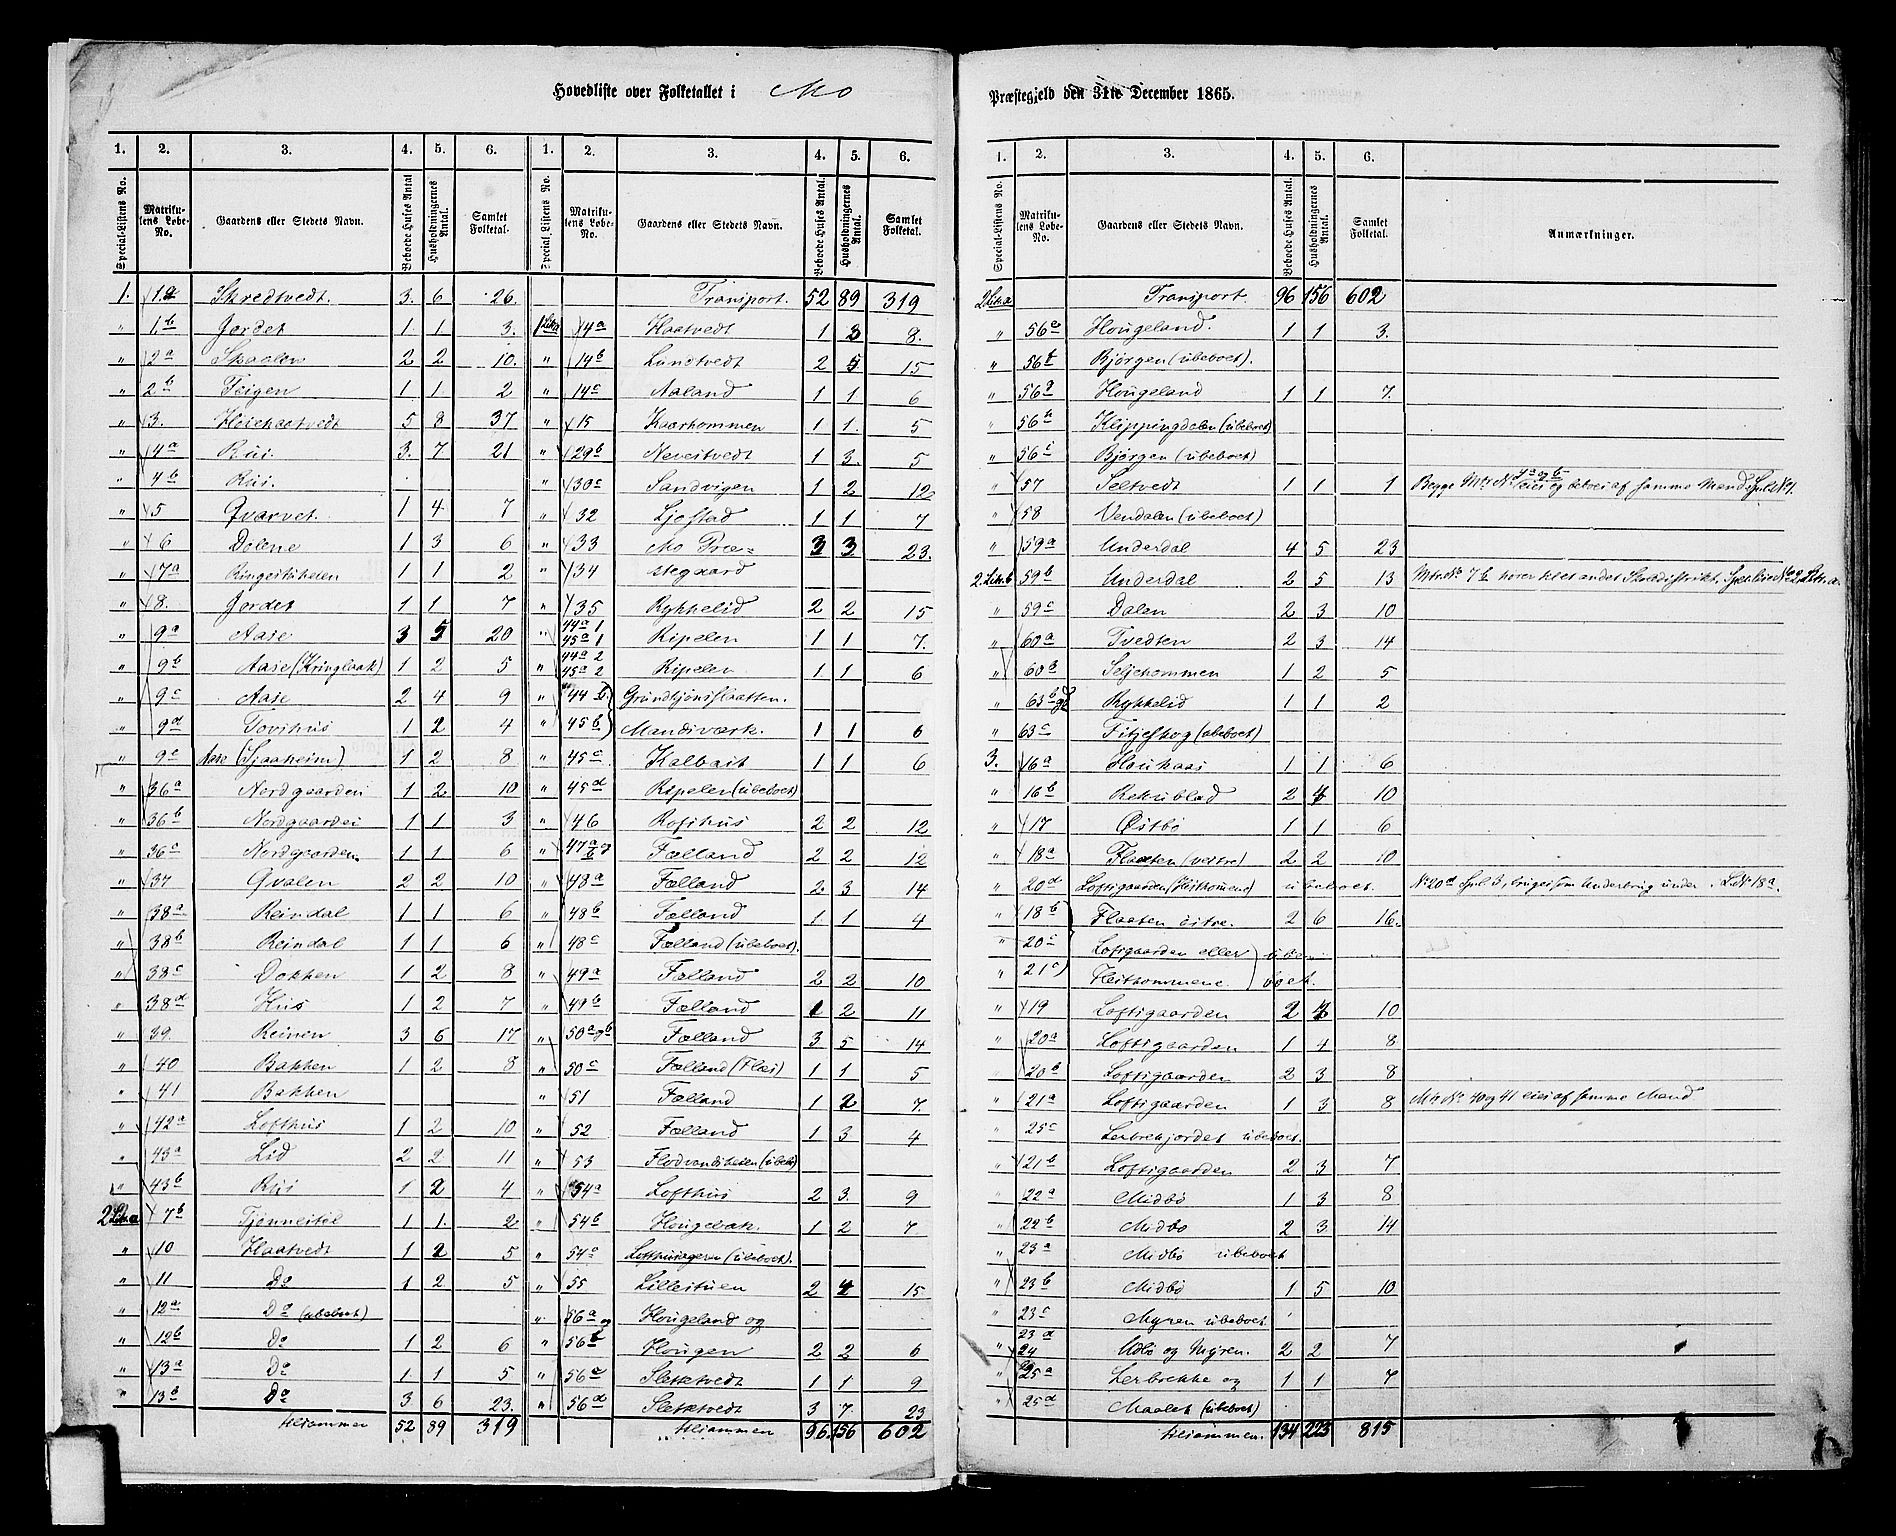 Hovedliste over Folketallet i Mo
1. 2. 3. 4. 5. 6. 1. 2. 3. 4. 5. 6.
Special-Listens No. Matrikulens Løbe-No. Gaardens eller Stedets Navn. Beboede Huses Antal Husholdningernes Antal. Samlet Folketal. Special-Listens No. Matrikulens Løbe-No. Gaardens eller Stedets Navn. Beboede Huses Antal. Husholdningernes Antal. Samlet Folketal.
1. 1a Skredtvedt. 3. 6 26. Transport. 52 89 319
" 1b Jordet 1 1 3. 1 Litra 14a Haatvedt 1 3 8.
" 2a Skaalen 2 2 10. " 14b Lundtvedt 2 5 15
" 2b Teigen 1 1 2 " 14c Aaland 1 1 6
" 3. 5 8 37 " 15 Kaashommen 1 1. 5
" 4a Rui 3. 7 21 " 29b Nevestvedt 1 3. 5
" 4b Rui. " 30c Sandvigen 1 2 12
" 5 Qvarvet. 1 4 7 " 32 Ljostad 1 1 7
" 6 Dalene 1 3 6 " 33 Mo Præ= 3 3 23.
" 7a 1 1 2 " 34 stegaard
" 8. Jordet 1 1 7 " 35 Rykkelid 2 2 15
" 9a Aase 3 5 20 " 44a 1 45a 1 Ripelen 1 1 7.
" 9b Aase (Kringlaak) 1 2 5 " 44a 2 45a 2 Ripelen 1 1 6
" 9c Aase 2 4 9 " 44 b.
" 9d Tovihus 1 2 4 " 45b Mandiværk. 1 1 6
" 9e Aase (Sjaaheim) 1 2 8 " 45c Kalbait 1 1 6
" 36a Nordgaarden 1 2 10 " 45d Ripelen (ubeboet)
" 36b Nordgaarden 1 1 3 " 46 Rofihus 2 2 12
" 36c Nordgaarden 1 1 6 " 47a og b Fælland 2 2 12
" 37 Qvalen 2 2 10 " 48a Fælland 2 3 14
" 38a Reindal 1 1 6 " 48b Fælland 1 1 4
" 38b Reindal 1 1 6 " 48c Fælland (ubeboet).
" 38c Dokken 1 2 8 " 49a Fælland 2 2 10
" 38d Hus 1 2 7 " 49b Fælland 1 2 11
" 39. Reinen 3 6 17 " 50a og b Fælland 3 5 14
" 40 Bakken 1 2 8 " 50c Fælland (Flas) 1 1 5
" 41 Bakken " 51 Fælland 1 2 7.
" 42a Lofthus 1 2 10 " 52 Fælland 1 3 4
" 43a Lid 2 2 11 " 53
" 43b Rui 1 2 4 " 54a Lofthus 2 3. 9
2 Litra a 7b Tjønnestøl 1 1. 2 " 54b Hougebak. 1 2 7.
" 10 Haatvedt 1 2 5 " 54c (ubeboet).
" 11 Do 1 2 5 " 55 Lillestuen 2 4 15
" 12a Do (ubeboet) " 56a og Hougeland og
" 12b Do 1 2 6 " 56b Hougen 2 2 6
" 13a Do 1 1 5 " 56c Sletkvedt 1 1 9
" 13b Do 3 6 23. " 56d Sletkvedt 3 7. 23
tilsammen 52 89 319 tilsammen 96. 156 602
Præstegjeld den 31te December 1865.
1. 2. 3. 4. 5. 6.
Special-Listens No. Matrikulens Løbe-No. Gaardens eller Stedets Navn. Beboede Huses Antal. Husholdningernes Antal. Samlet Folketal. Anmærkninger.
2 Litra a Transport. 96 156 602
" 56e Hougeland. 1 1 3.
" 56f Bjørgen (ubeboet).
" 56g Hougeland 1 1 7.
" 56h Klippingdalen (ubeboet)
" 56i Bjørgen (ubeboet)
" 57 Seltvedt 1 1 1 Begge Mtr No 4a og b eies og beboes af samme Mand
" 58 Vendalen (ubeboet)
" 59a Underdal 4 5 23
2 Litr. b 59b Underdal 2 5 13 Mtr No 7b hører til et andet Skoledistrikt,
" 59c Dalen 2 3 10
" 60a Tvedten 2 3 14
" 60b Seljehommen 1 2 5
" 63b og d Rykkelid 1 1 2
" 63c (ubeboet)
3. 16a Haukaas 1 1 6
" 16b Rekublad 2 4 10
" 17 Østbø 1 1 6
" 18a Flaaten (vestre) 2 2 10
" 20d Loftsgaarden ubeboet. No 20d Spl 3, bruges som Underbrug under L No 18a.
" 18b Flaaten østre. 2 6 16.
" 20c Loftsgaarden eller ube=
" 21c boet.
" 19 Loftsgaarden 2 4 10
" 20a Loftsgaarden 1 4 8
" 20b Loftsgaarden 2 3 8
" 21a Loftsgaarden 1 3 8 Mtr No 40 og 41 eies af samme Mand
" 25c Lerbrekjordet ubeboet.
" 21b Loftsgaarden 2 3 7
" 22a Midbø 1 3 8
" 22b Midbø 2 3 14
" 23a Midbø ubeboet
" 23b Midbø 1 5 10
" 23c Myren ubeboet
" 23d 24 Udbø og Myren. 2 2 7
" 25a Lerbrekke og 1 1 7
" 25d Maalet (ubeboet)
tilsammen. 134 223 815